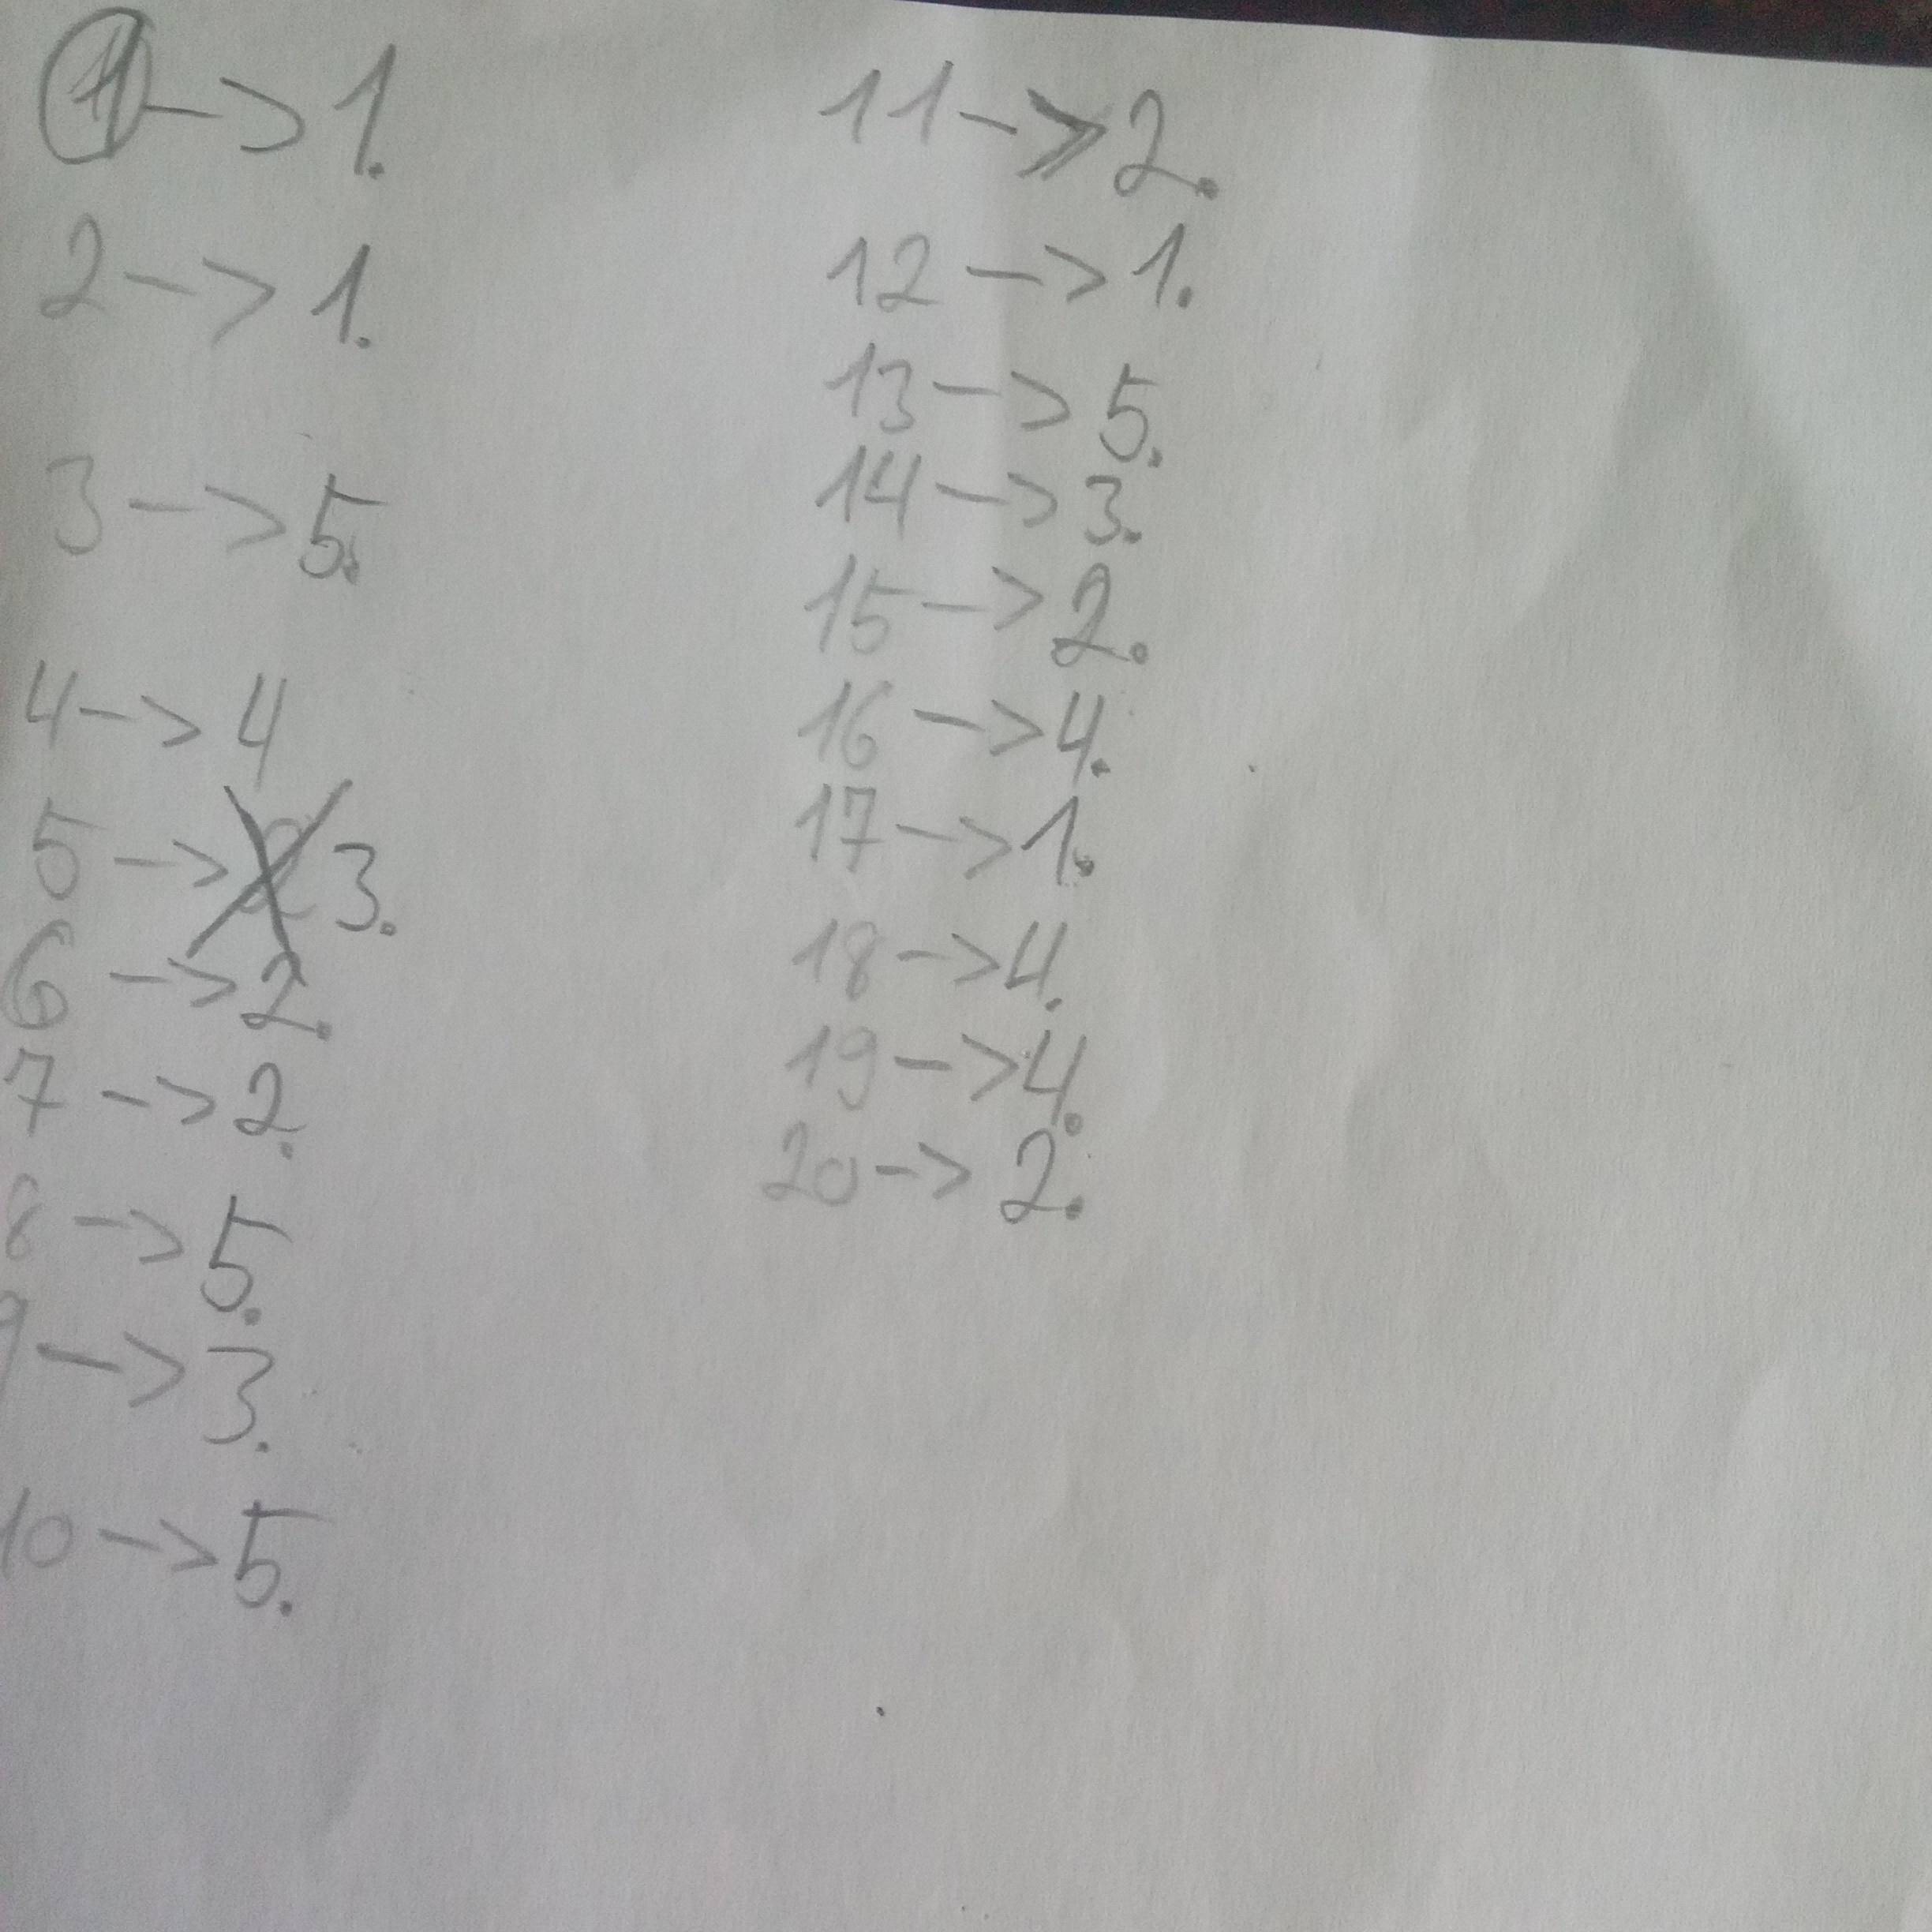 1 -> 1.
2 -> 1.
3 -> 5.
4 -> 4
5 -> 2 3.
6 -> 2.
7 -> 2.
8 -> 5.
9 -> 3.
10 -> 5.
11 -> 2.
12 -> 1.
13 -> 5.
14 -> 3.
15 -> 2.
16 -> 4.
17 -> 1.
18 -> 4.
19 -> 4.
20 -> 2.